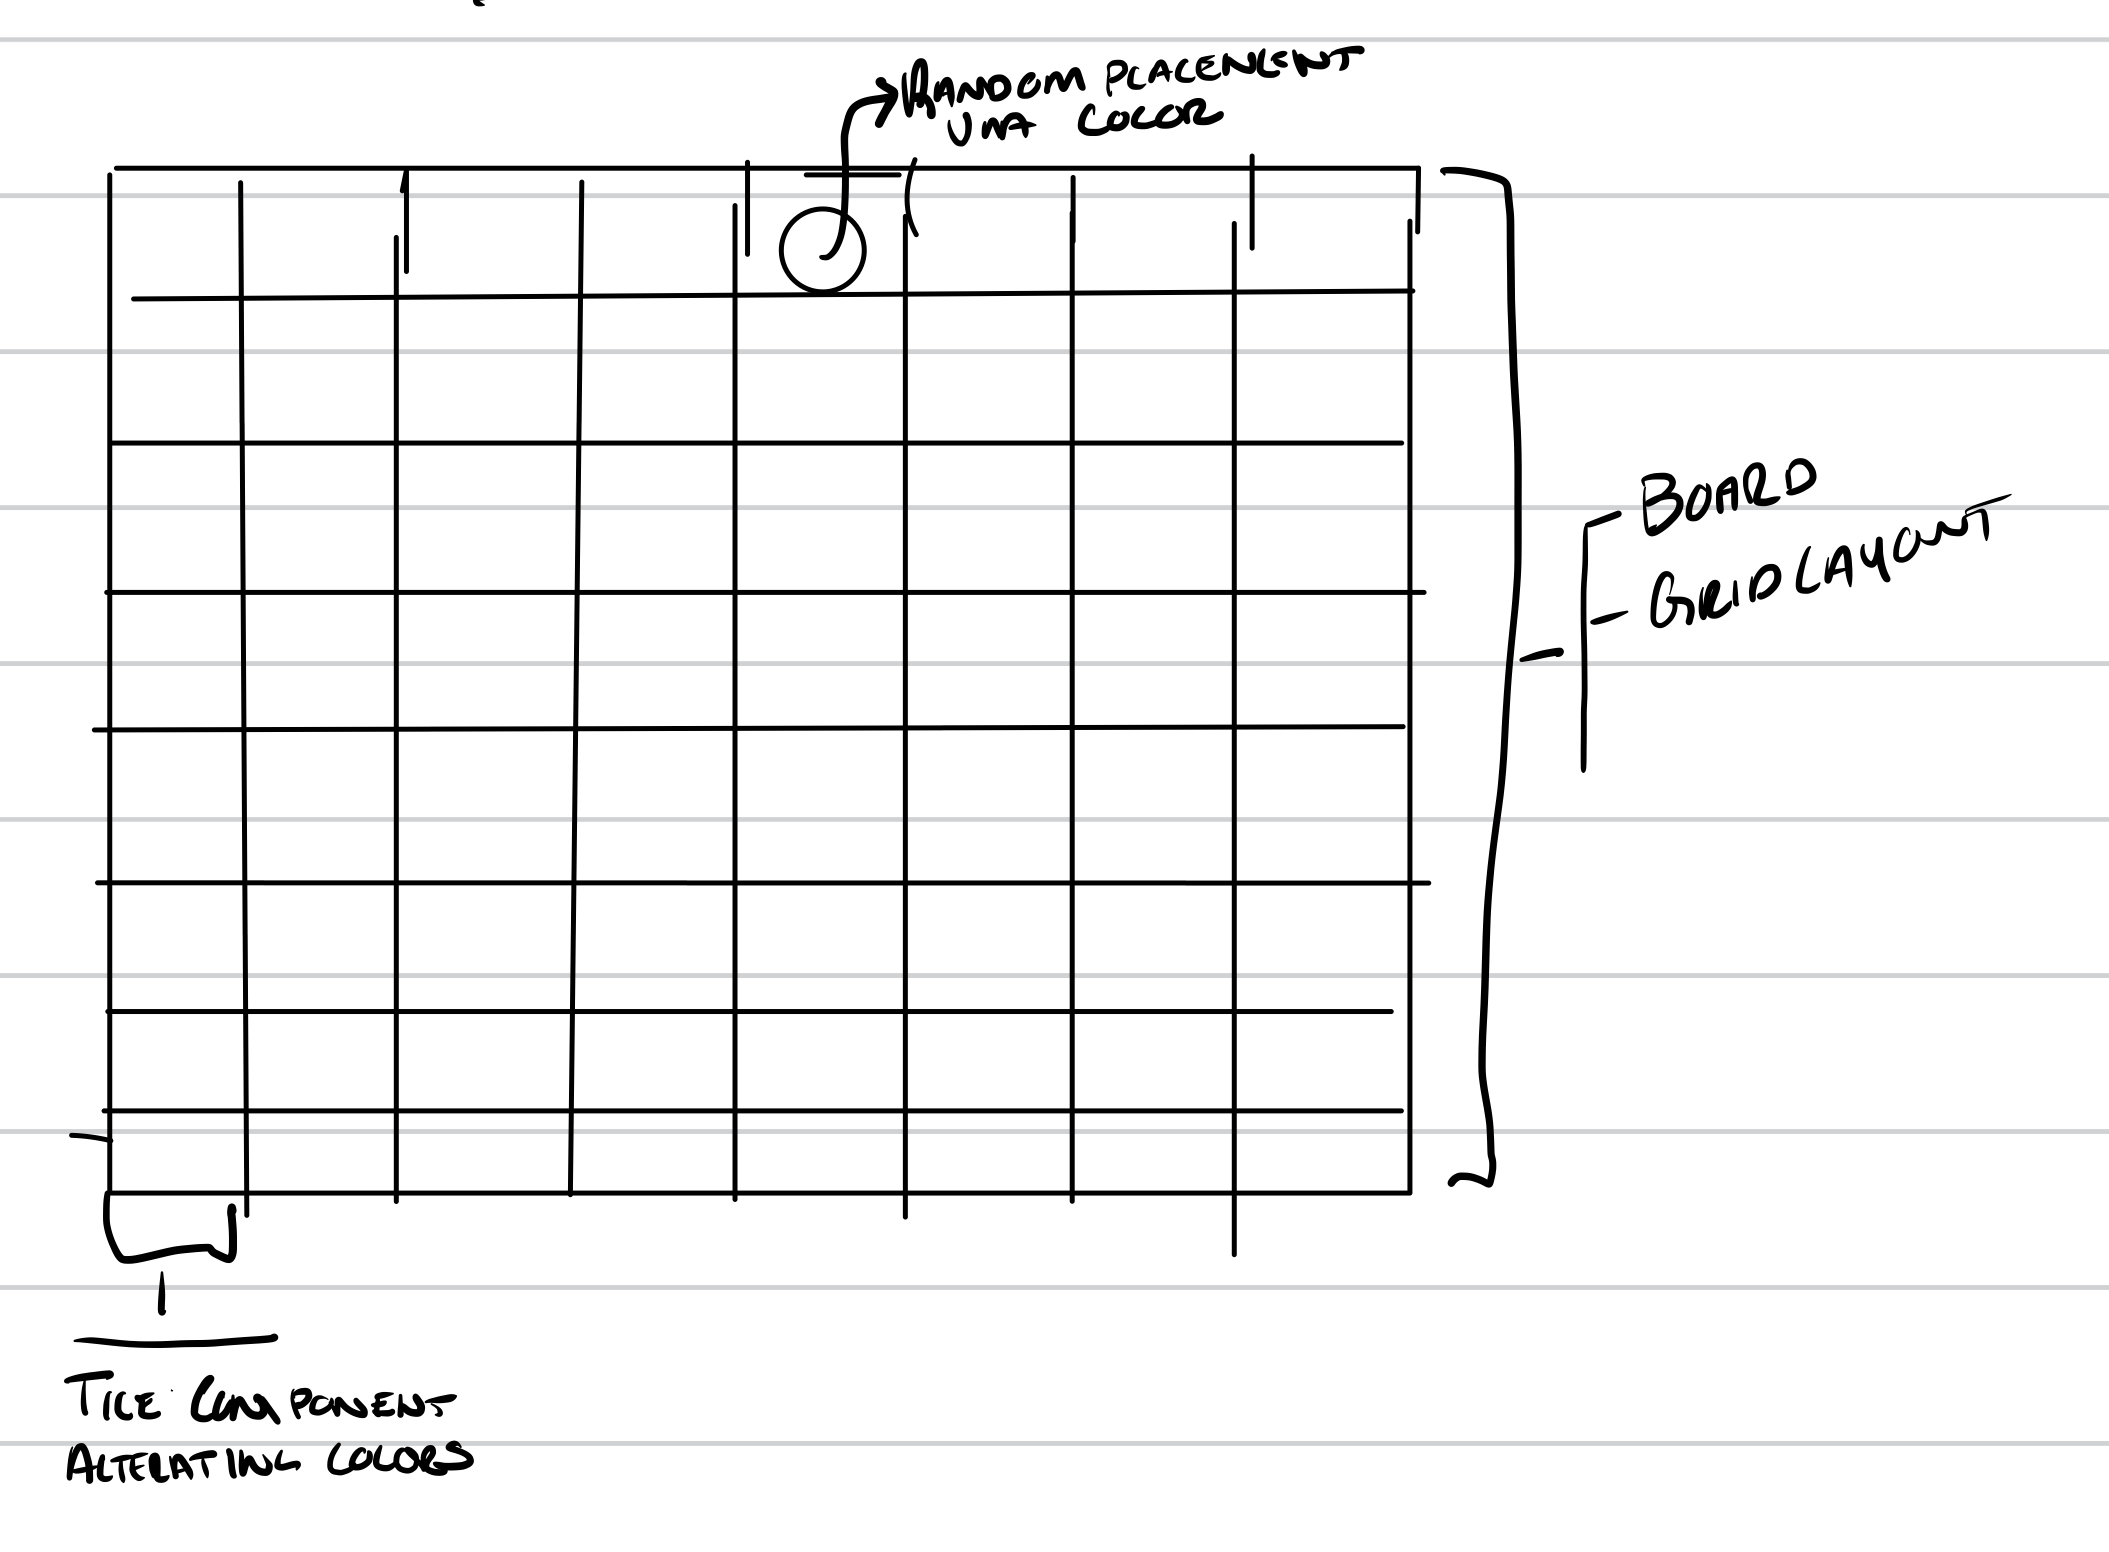 RANDOM PLACEMENT
VIA COLOR
BOARD
GRID LAYOUT
TILE COMPONENT
ALTERATING COLORS